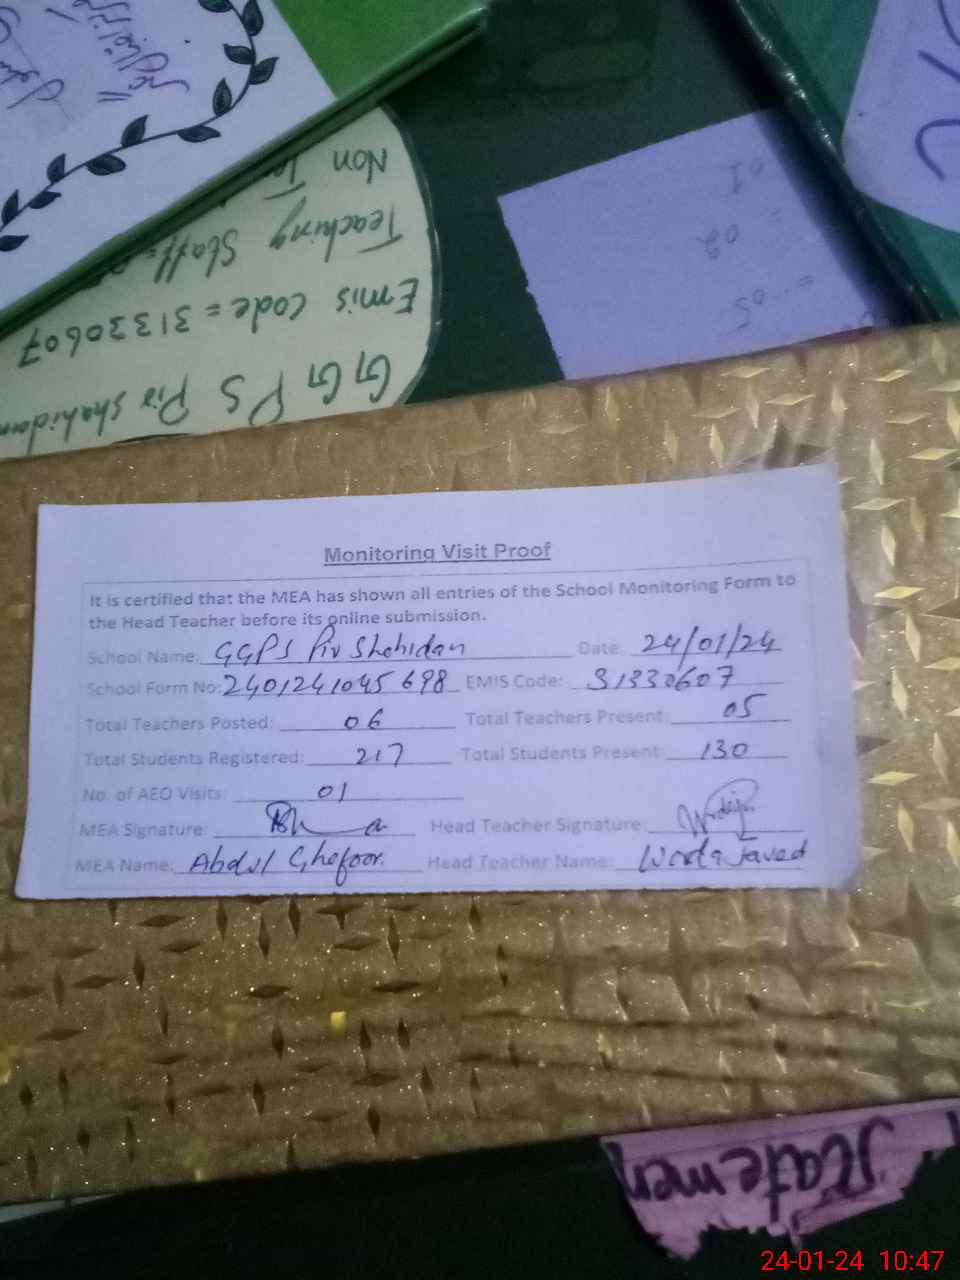 Non
Teaching Staff
Emis code = 31330607
GGPS Pir Shahidan
01
02
= 05
Monitoring Visit Proof
It is certified that the MEA has shown all entries of the School Monitoring Form to
the Head Teacher before its online submission.
School Name: GGPS Pir Shahidan Date: 24/01/24
School Form No: 2401241045698 EMIS Code: 31330607
Total Teachers Posted: 06 Total Teachers Present: 05
Total Students Registered: 217 Total Students Present: 130
No. of AEO Visits: 01
MEA Signature: Head Teacher Signature:
MEA Name: Abdul Ghafoor. Head Teacher Name: Warda Javed
Statemen
24-01-24 10:47